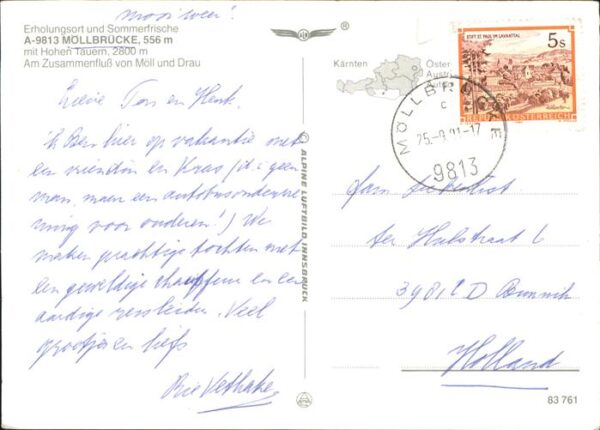 mooi weer!
Erholungsort und Sommerfrische
A-9813 MÖLLBRÜCKE, 556 m
mit Hohen Tauern, 2800 m
Am Zusammenfluß von Möll und Drau
Lieve Ton en Henk.
ik Ben hier op vakantie met
een vriendin en Kras (it is geen
man, maar een autobusonderne
ming voor ouderen!) We
maken prachtige tochten met
een geweldige chauffeur en een
aardige reisleider. Veel
groetjes en liefs
Rie Vethake
© ALPINE LUFTBILD INNSBRUCK
Kärnten
Öster
Austr
STIFT ST. PAUL IM LAVANTTAL
5s
REPUBLIK ÖSTERREICH
MÖLLBRÜCKE
c
25.-9.91-17
9813
Fam
ter Hulstraat 6
3981 D Bunnik
Holland
83 761